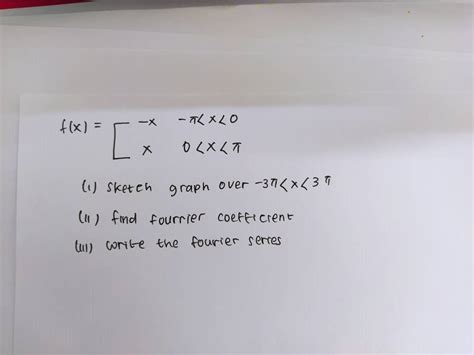 f(x) = [ -x   -π<x<0
x   0<x<π
(i) sketch graph over -3π<x<3π
(ii) find fourrier coefficient
(iii) write the fourier series